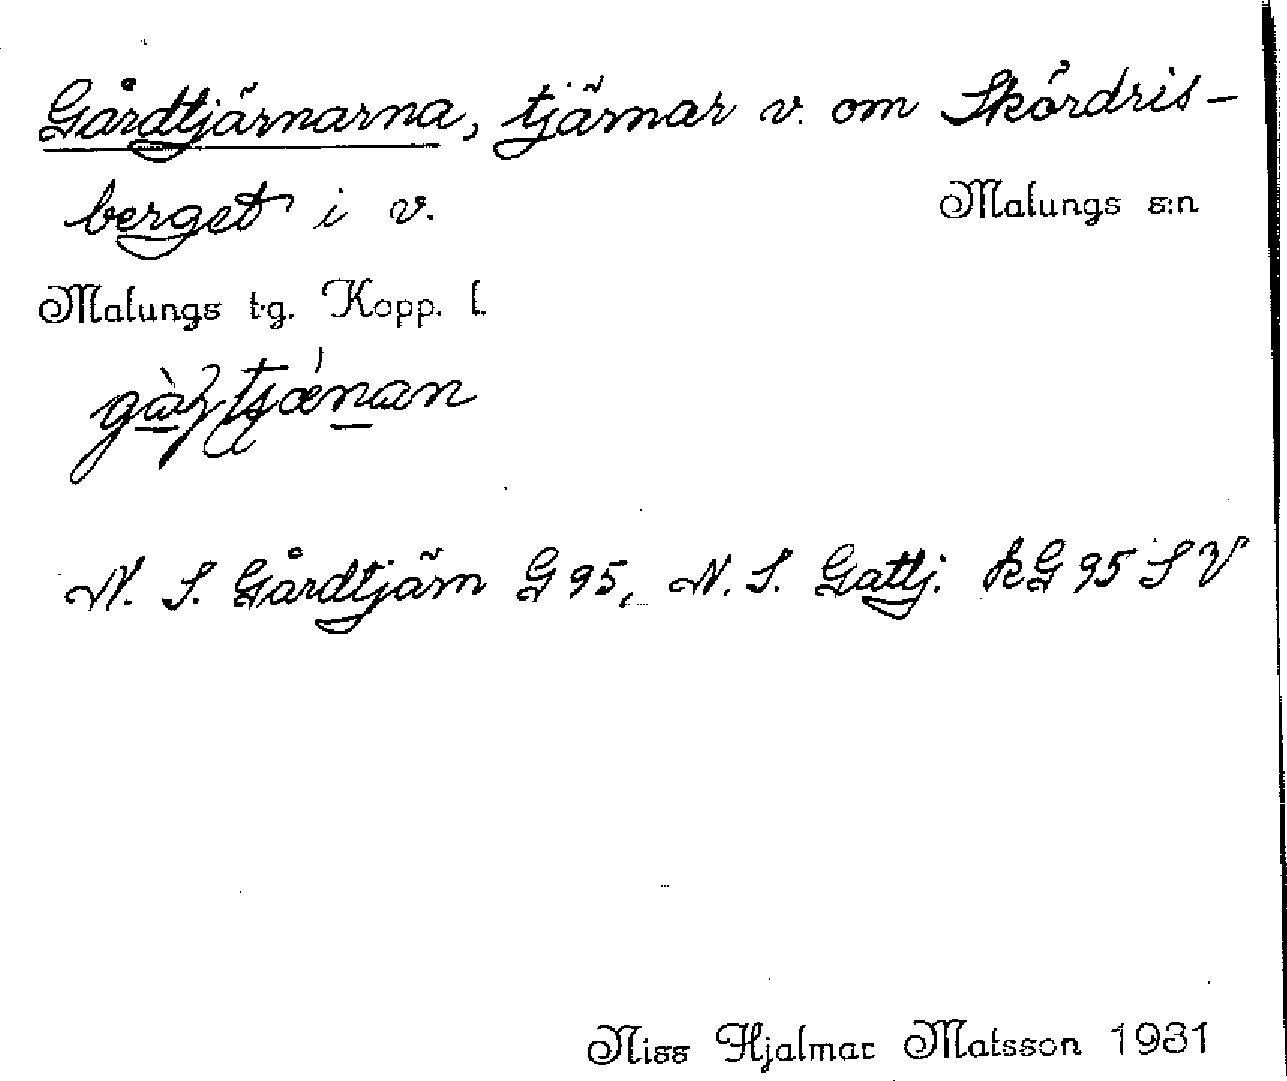 Gårdtjärnarna, tjärnar v. om Skördris-
berget i v. Malungs s:n
Malungs tg. Kopp. l.
N. S. Gårdtjärn G 95, N. S. Gattj. kG 95 S V
Niss Hjalmar Matsson 1931